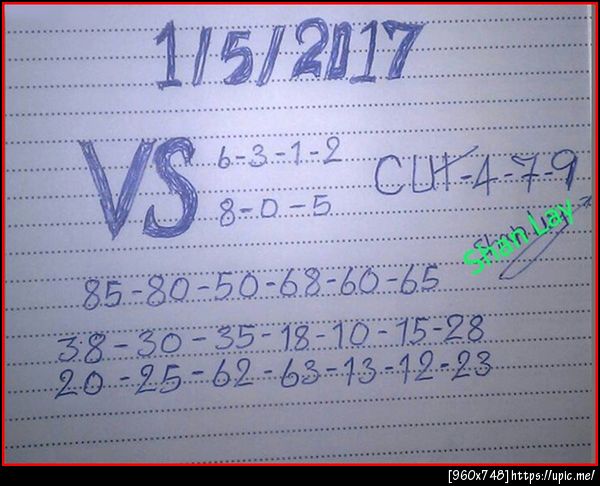 1/5/2017
VS 6-3-1-2
8-0-5
CUT-4-7-9
Shan Lay
85-80-50-68-60-65
38-30-35-18-10-15-28
20-25-62-63-13-12-23
[960x748]https://upic.me/